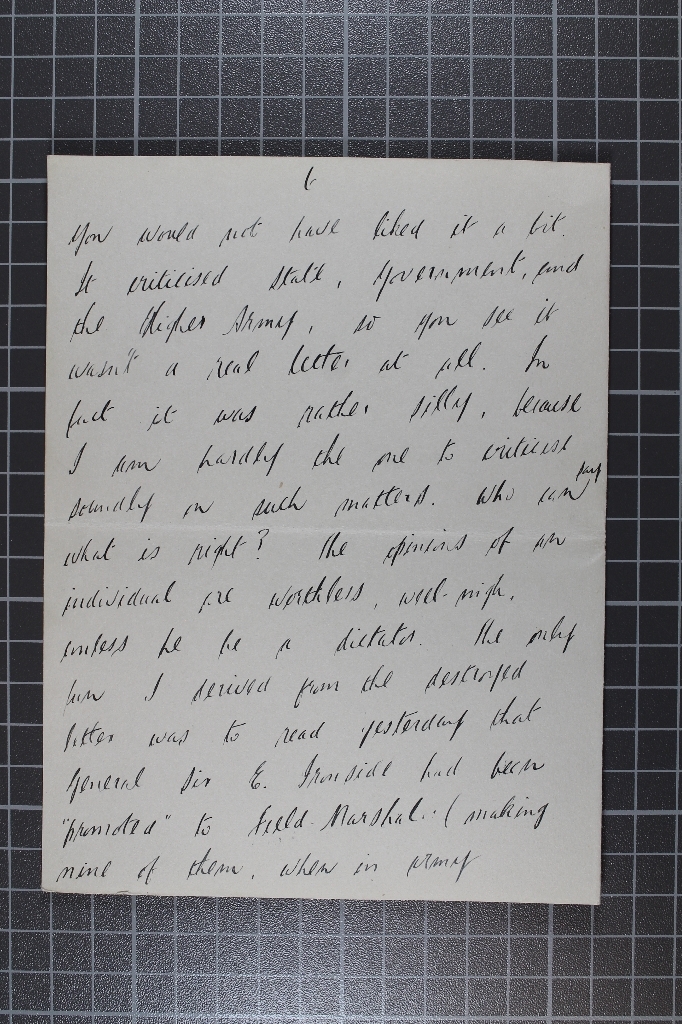 6
you would not have liked it a bit.
It criticised State, Government, and
the Higher Army, so you see it
wasn't a real letter at all. In
fact it was rather silly, because
I am hardly the one to criticise
soundly on such matters. Who can say
what is right? The opinions of an
individual are worthless, well-nigh,
unless he be a dictator. The only
fun I derived from the destroyed
letter was to read yesterday that
General Sir E. Ironside had been
"promoted" to Field-Marshal: (making
nine of them, when in army